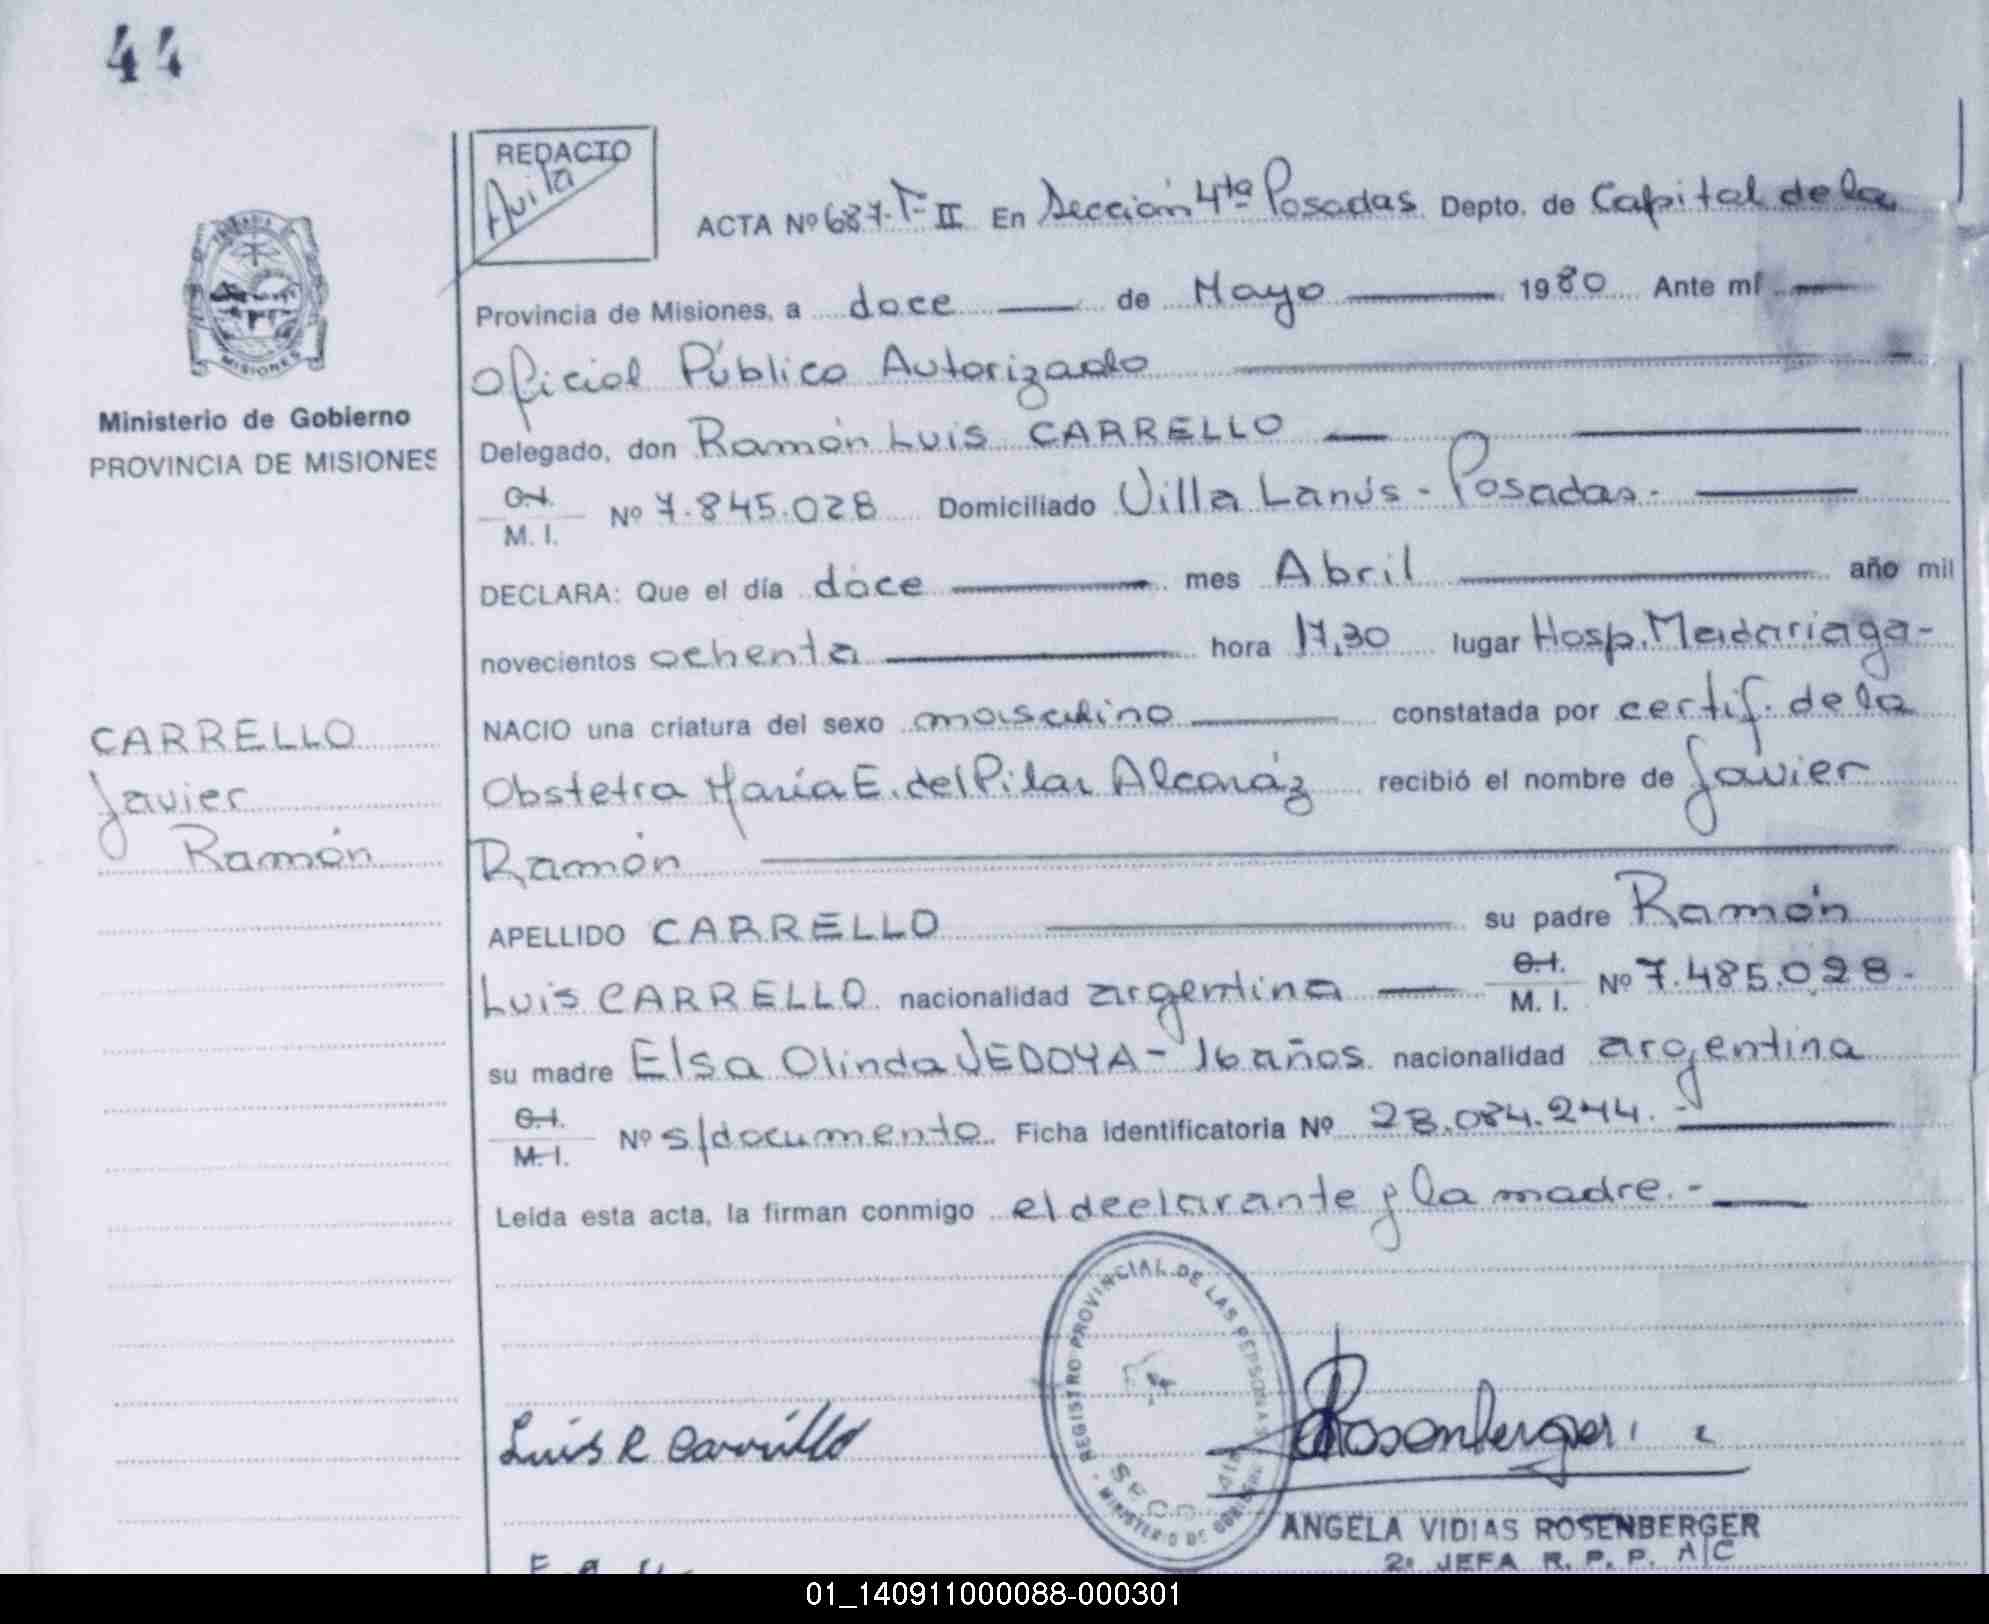 44
REDACTO
Avila
ACTA Nº 687-Tº II En Sección 4ta Posadas Depto. de Capital de la
Provincia de Misiones, a doce de Mayo 1980 Ante mí
Oficial Público Autorizado
Delegado, don Ramón Luis CARRELLO
C.I.
M. I. Nº 7.845.028 Domiciliado Villa Lanús - Posadas.-
DECLARA: Que el día doce mes Abril año mil
novecientos ochenta hora 17,30 lugar Hosp. Madariaga-
NACIO una criatura del sexo masculino constatada por certif. de la
Obstetra María E. del Pilar Alcaráz recibió el nombre de Javier
Ramón
APELLIDO CARRELLO su padre Ramón
Luis CARRELLO nacionalidad argentina C.I. M. I. Nº 7.485.028.-
su madre Elsa Olinda VEDOYA - 16 años nacionalidad argentina
C.I.
M. I. Nº s/documento Ficha identificatoria Nº 28.084.244.-
Leída esta acta, la firman conmigo el declarante y la madre.-
MISIONES
Ministerio de Gobierno
PROVINCIA DE MISIONES
CARRELLO
Javier
Ramón
REGISTRO PROVINCIAL DE LAS PERSONAS
MINISTERIO DE GOBIERNO
SECC. 4ta
Luis R Carrillo
Rosenberger
ANGELA VIDIAS ROSENBERGER
2º JEFA R. P. P. A/C
01_140911000088-000301